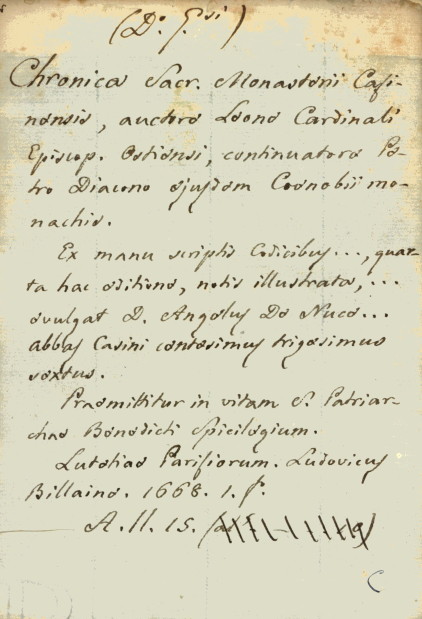 (D. G.si)
Chronica Sacr. Monasterii Casi-
nensis, auctore Leone Cardinali
Episcop. Ostiensi, continuatore Pe-
tro Diacono ejusdem Coenobii mo-
nacho.
Ex manu scriptis Codicibus..., quar-
ta hac editione, notis illustrata,...
evulgat D. Angelus De Nuce...
abbas Casini centesimus trigesimus
sextus.
Praemittitur in vitam S. Patriar-
chae Benedicti Spicilegium.
Lutetiae Parisiorum. Ludovicus
Billaine. 1668. 1. f.
A. II. 15.
C